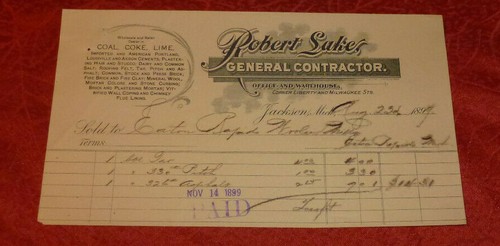 Wholesale and Retail
Dealer in
COAL, COKE, LIME,
Imported and American Portland,
Louisville and Akron Cements, Plaster-
ing Hair and Stucco; Dairy and Common
Salt; Roofing Felt, Tar, Pitch and As-
phalt; Common, Stock and Press Brick,
Fire Brick and Fire Clay; Mineral Wool,
Mortar Colors and Stone; Cunning
Brick and Plastering Mortar; Vit-
rified Wall Coping and Chimney
Flue Lining.
Robert Lake,
GENERAL CONTRACTOR.
OFFICE AND WAREHOUSE,
Corner Liberty and Milwaukee Sts.
Jackson, Mich., Aug 22d 1899
Sold to Eaton Rapids Woolen Mills
Terms Eaton Rapids Mich
1 bbl Tar 4.00 4.00
1 " 330 # Pitch 1.00 3.30
1 "
NOV 14 1899
PAID